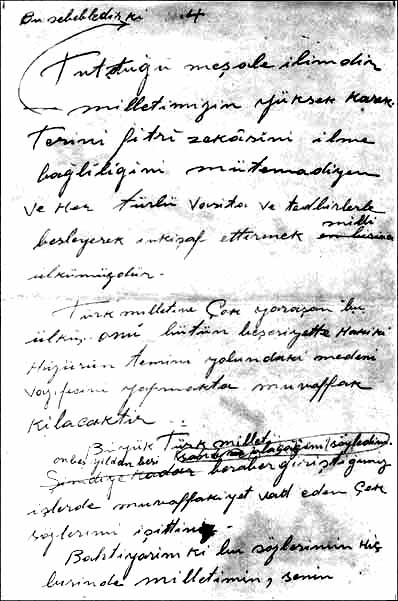 Bu sebebledir ki 4
Tuttuğu meşale ilimdir
milletimizin yüksek karak-
terini fıtri zekâsını ilme
bağlılığını mütemadiyen
ve her türlü vasıta ve tedbirlerle
milli
besleyerek inkişaf ettirmek
ülkümüzdür.
Türk milletine çok yaraşan bu
ülkü, onu bütün beşeriyette hakiki
huzurun temini yolundaki medeni
vazifesini yapmakta muvaffak
kılacaktır
Büyük Türk milleti
onbeş yıldan beri
Şimdiye kadar beraber giriştiğimiz
işlerde muvaffakiyet vad eden çok
sözlerimi işittin
Bahtiyarım ki bu sözlerimin hiç
birinde milletimin, senin